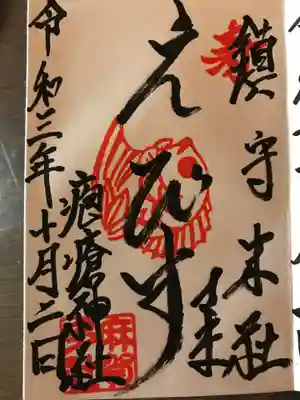 鎮守末社
えびす様
疱瘡神社
令和三年十月二日